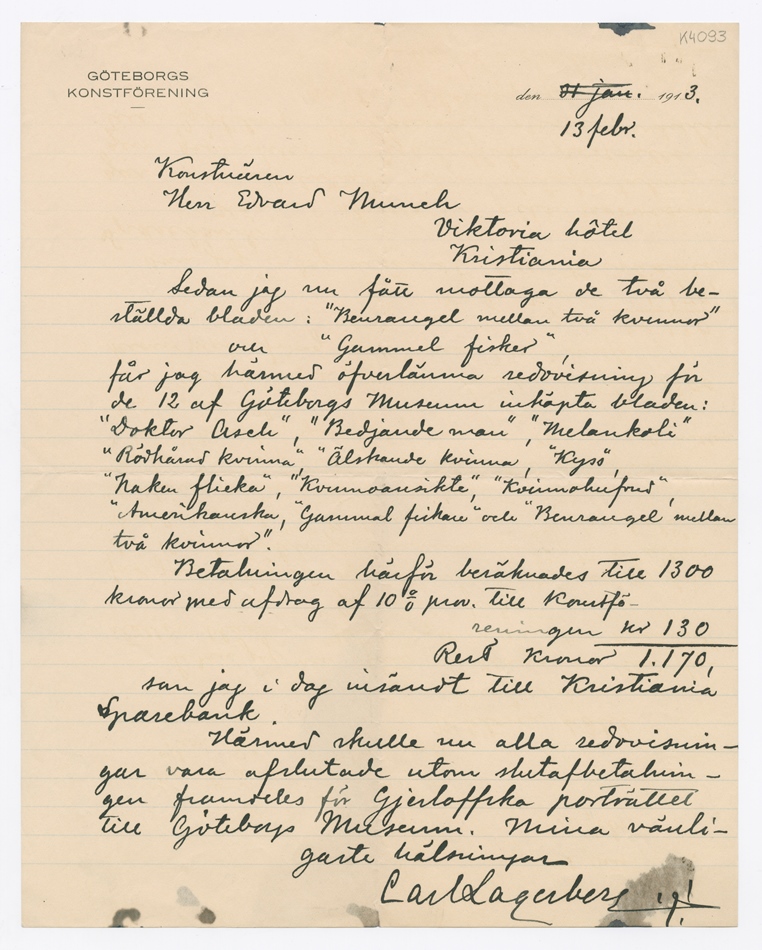 K4093
GÖTEBORGS
KONSTFÖRENING
den 31 jan. 1913.
13 febr.
Konstnären
Herr Edvard Munch
Viktoria hôtel
Kristiania
Sedan jag nu fått mottaga de två be-
ställda bladen: "Benrangel mellan två kvinnor"
och "Gammel fisker",
får jag härmed öfverlämna redovisning för
de 12 af Göteborgs Museum inköpta bladen:
"Doktor Asch", "Bedjande man", "Melankoli"
"Rödhårad kvinna", "Älskande kvinna, "Kyss",
"Naken flicka", "Kvinnoansikte", "Kvinnohufvud",
"Amerikanska, "Gammal fiskare" och "Benrangel mellan
två kvinnor".
Betalningen härför beräknades till 1300
kronor med afdrag af 10 % prov. till Konstfö-
reningen kr 130
Rest Kronor 1.170,
som jag i dag insändt till Kristiania
Sparebank.
Härmed skulle nu alla redovisnin-
gar vara afslutade utom slutafbetalnin-
gen framdeles för Gjerloffska porträttet
till Göteborgs Museum. Mina vänli-
gaste hälsningar
Carl Lagerberg